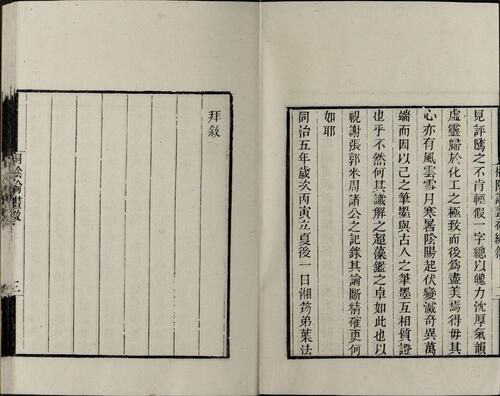 見評隲之不肯輕假一字總以魄力沈厚氣韻
虛靈歸於化工之極致而後為盡美焉得毋其
心亦有風雲雪月寒暑陰陽起伏變滅奇異萬
端而因以己之筆墨與古人之筆墨互相質證
也乎不然何其識解之超藻鑑之卓如此也以
視謝張郭米周諸公之記錄其論斷精確更何
如耶
同治五年歲次丙寅立夏後一日湘筠弟葉法
拜敘
桐陰論畫敘
三